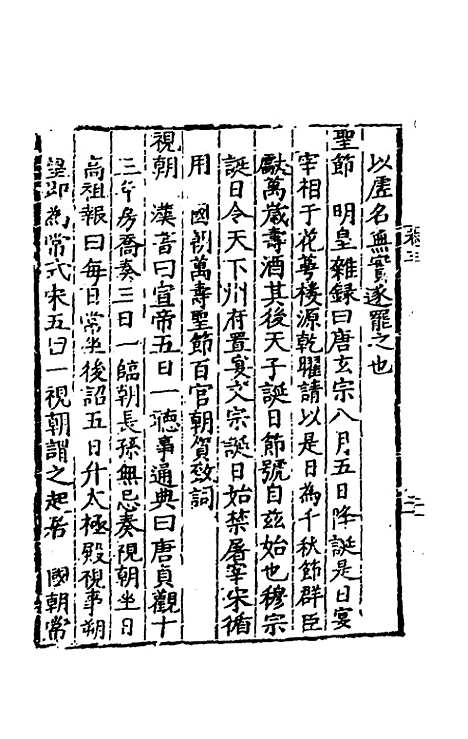 以虛名無實遂罷之也
聖節　明皇雜録曰唐玄宗八月五日降誕是日宴
宰相于花萼楼源乾曜請以是日為千秋節群臣
獻萬歲壽酒其後天子誕日節號自兹始也穆宗
誕日令天下州府置宴文宗誕日始禁屠宰宋循
用　國朝萬壽聖節百官朝賀致詞
視朝　漢音曰宣帝五日一聴事通典曰唐貞觀十
三年房喬奏三日一臨朝長孫無忌奏視朝坐日
高祖報曰每日常坐後詔五日升太極殿視事朔
望即為常式宋五日一視朝謂之起居　國朝常